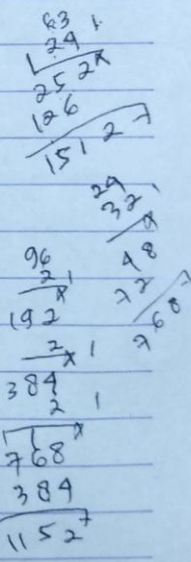 63
24
252
126
1512
24
32
48
72
768
96
2
192
2
384
2
768
384
1152